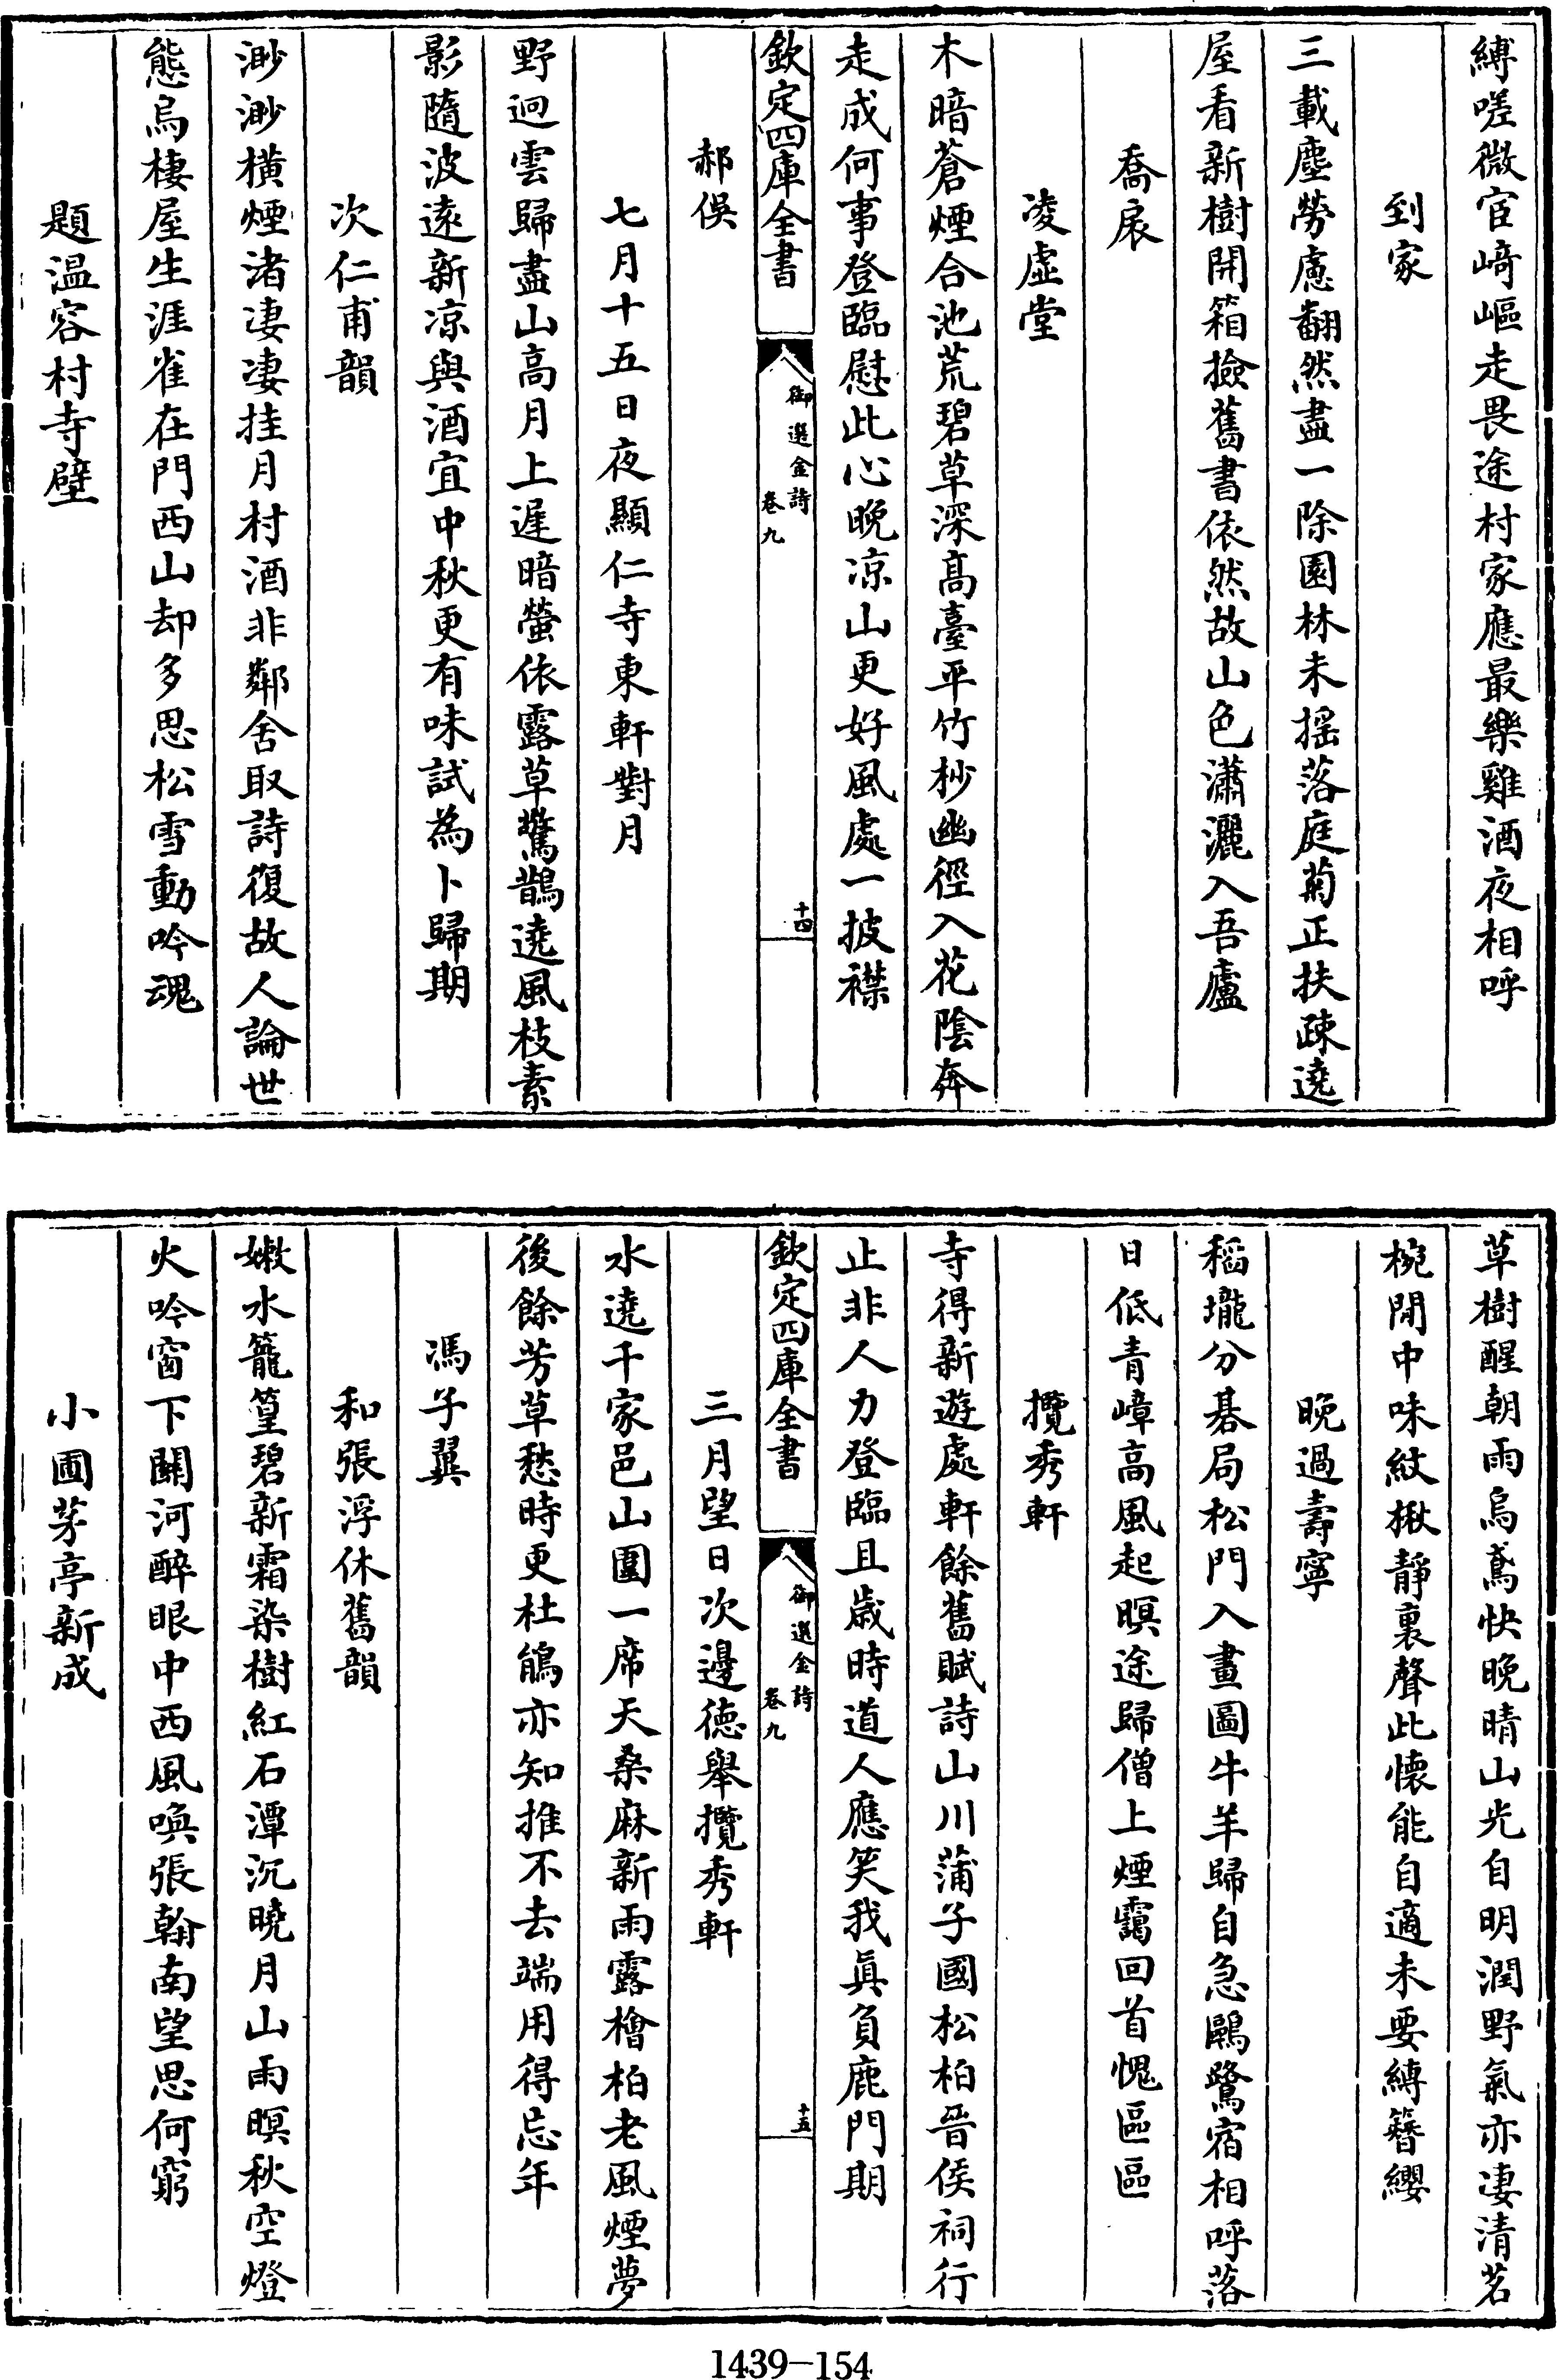 縛嗟微宦﨑嶇走畏途村家應最樂雞酒夜相呼
到家
三載塵勞慮翻然盡一除園林未摇落庭菊正扶疎遶
屋看新樹開箱撿舊書依然故山色瀟灑入吾廬
喬扆
凌虛堂
木暗蒼煙合池荒碧草深髙臺平竹杪幽徑入花陰奔
走成何事登臨慰此心晚凉山更好風處一披襟
欽定四庫全書
御選金詩
卷九
十四
郝俁
七月十五日夜顯仁寺東軒對月
野逈雲歸盡山高月上遲暗螢依露草驚鵲遶風枝素
影隨波逺新凉與酒宜中秋更有味試為卜歸期
次仁甫韻
渺渺橫煙渚凄凄挂月村酒非鄰舍取詩復故人論世
態烏棲屋生涯雀在門西山却多思松雪動吟魂
題温容村寺壁
草樹醒朝雨烏鳶快晚晴山光自明潤野氣亦凄清茗
椀閒中味紋楸靜裏聲此懷能自適未要縛簪纓
晚過壽寧
稻壠分碁局松門入畫圖牛羊歸自急鷗鷺宿相呼落
日低青嶂高風起暝途歸僧上煙靄回首愧區區
攬秀軒
寺得新遊處軒餘舊賦詩山川蒲子國松柏晉侯祠行
止非人力登臨且歲時道人應笑我真負鹿門期
欽定四庫全書
御選金詩
卷九
十五
三月望日次邊德舉攬秀軒
水遶千家邑山圍一席天桑麻新雨露檜柏老風煙夢
後餘芳草愁時更杜鵑亦知推不去端用得忘年
馮子翼
和張浮休舊韻
嫩水籠篁碧新霜染樹紅石潭沉曉月山雨暝秋空燈
火吟窗下關河醉眼中西風喚張翰南望思何窮
小圃茅亭新成
1439-154